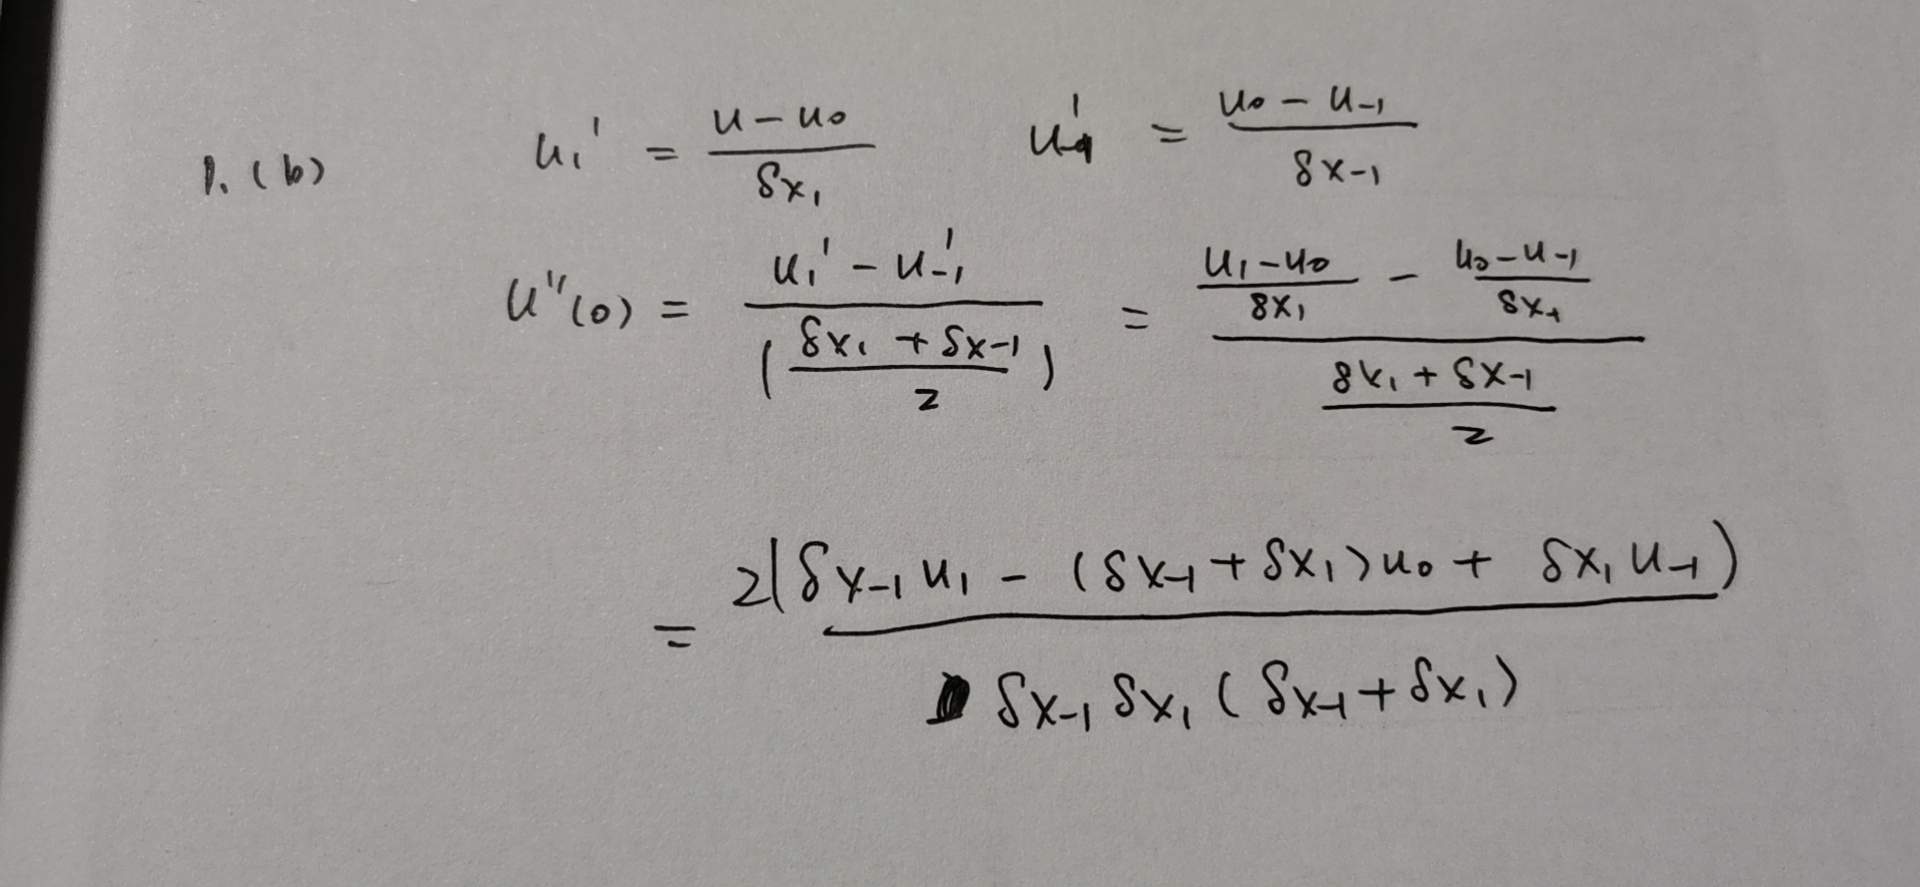 1. (b) u₁' = (u - u₀)/(δx₁) u₋₁' = (u₀ - u₋₁)/(δx₋₁)
u''(0) = (u₁' - u₋₁')/((δx₁ + δx₋₁)/2) = ((u₁ - u₀)/(δx₁) - (u₀ - u₋₁)/(δx₋₁))/((δx₁ + δx₋₁)/2)
= 2(δx₋₁ u₁ - (δx₋₁ + δx₁) u₀ + δx₁ u₋₁)/(δx₋₁ δx₁ (δx₋₁ + δx₁))